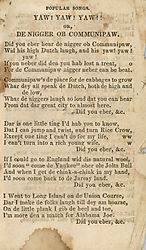 POPULAR SONGS.
YAW! YAW! YAW!!
OR,
DE NIGGER OB COMMUNIPAW.
Did you eber hear de nigger ob Communipaw,
Wid his high Dutch laugh, and his yaw! yaw!
yaw!
If you neber did den you hab lost a treat,
For de Communipaw nigger neber can be beat.
Communipaw's de place for de cabbages to grow
Whar dey all speak de Dutch, both de high and
de low,
Whar de niggers laugh so loud dat you can hear
From dat dar great city to almost here.
Did you eber, &c.
Dar is one little ting I'd hab you to know,
Dat I can jump and twist, and turn Rice Crow,
Except one ting I can't do for my life,
I can't turn into a rich young wife.
Did you eber, &c.
If I could go to England wid dis natural woof,
I'd soon "come de Yankee" ober ole John Bull
And when I get de chink-a-chink in my hand,
I'd soon come back to de Jarsey land.
Did you eber, &c.
I went to Long Island on de Union Course,
Dar I make de folks laugh till dey am hoarse,
On de little plank I rib de heel and toe,
I'm more den a match for Alabama Joe.
Did you eber, &c.